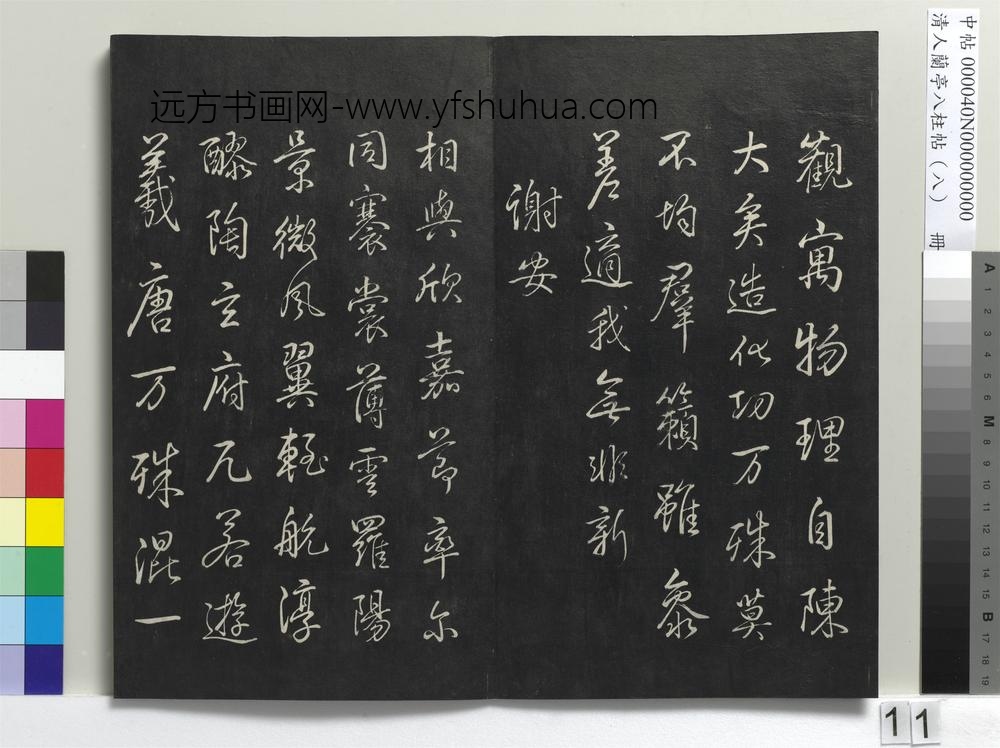 远方书画网-www.yfshuhua.com
觀寓物理自陳
大矣造化功万殊莫
不均羣籟雖參
差適我無非新
謝安
相與欣嘉節率尔
同褰裳薄雲羅陽
景微風翼輕航淳
醪陶玄府兀若遊
羲唐万殊混一
中帖 000040N000000000
清人蘭亭八柱帖（八） 冊
A 1 2 3 4 5 6 M 8 9 10 11 12 13 14 15 B 17 18 19
11